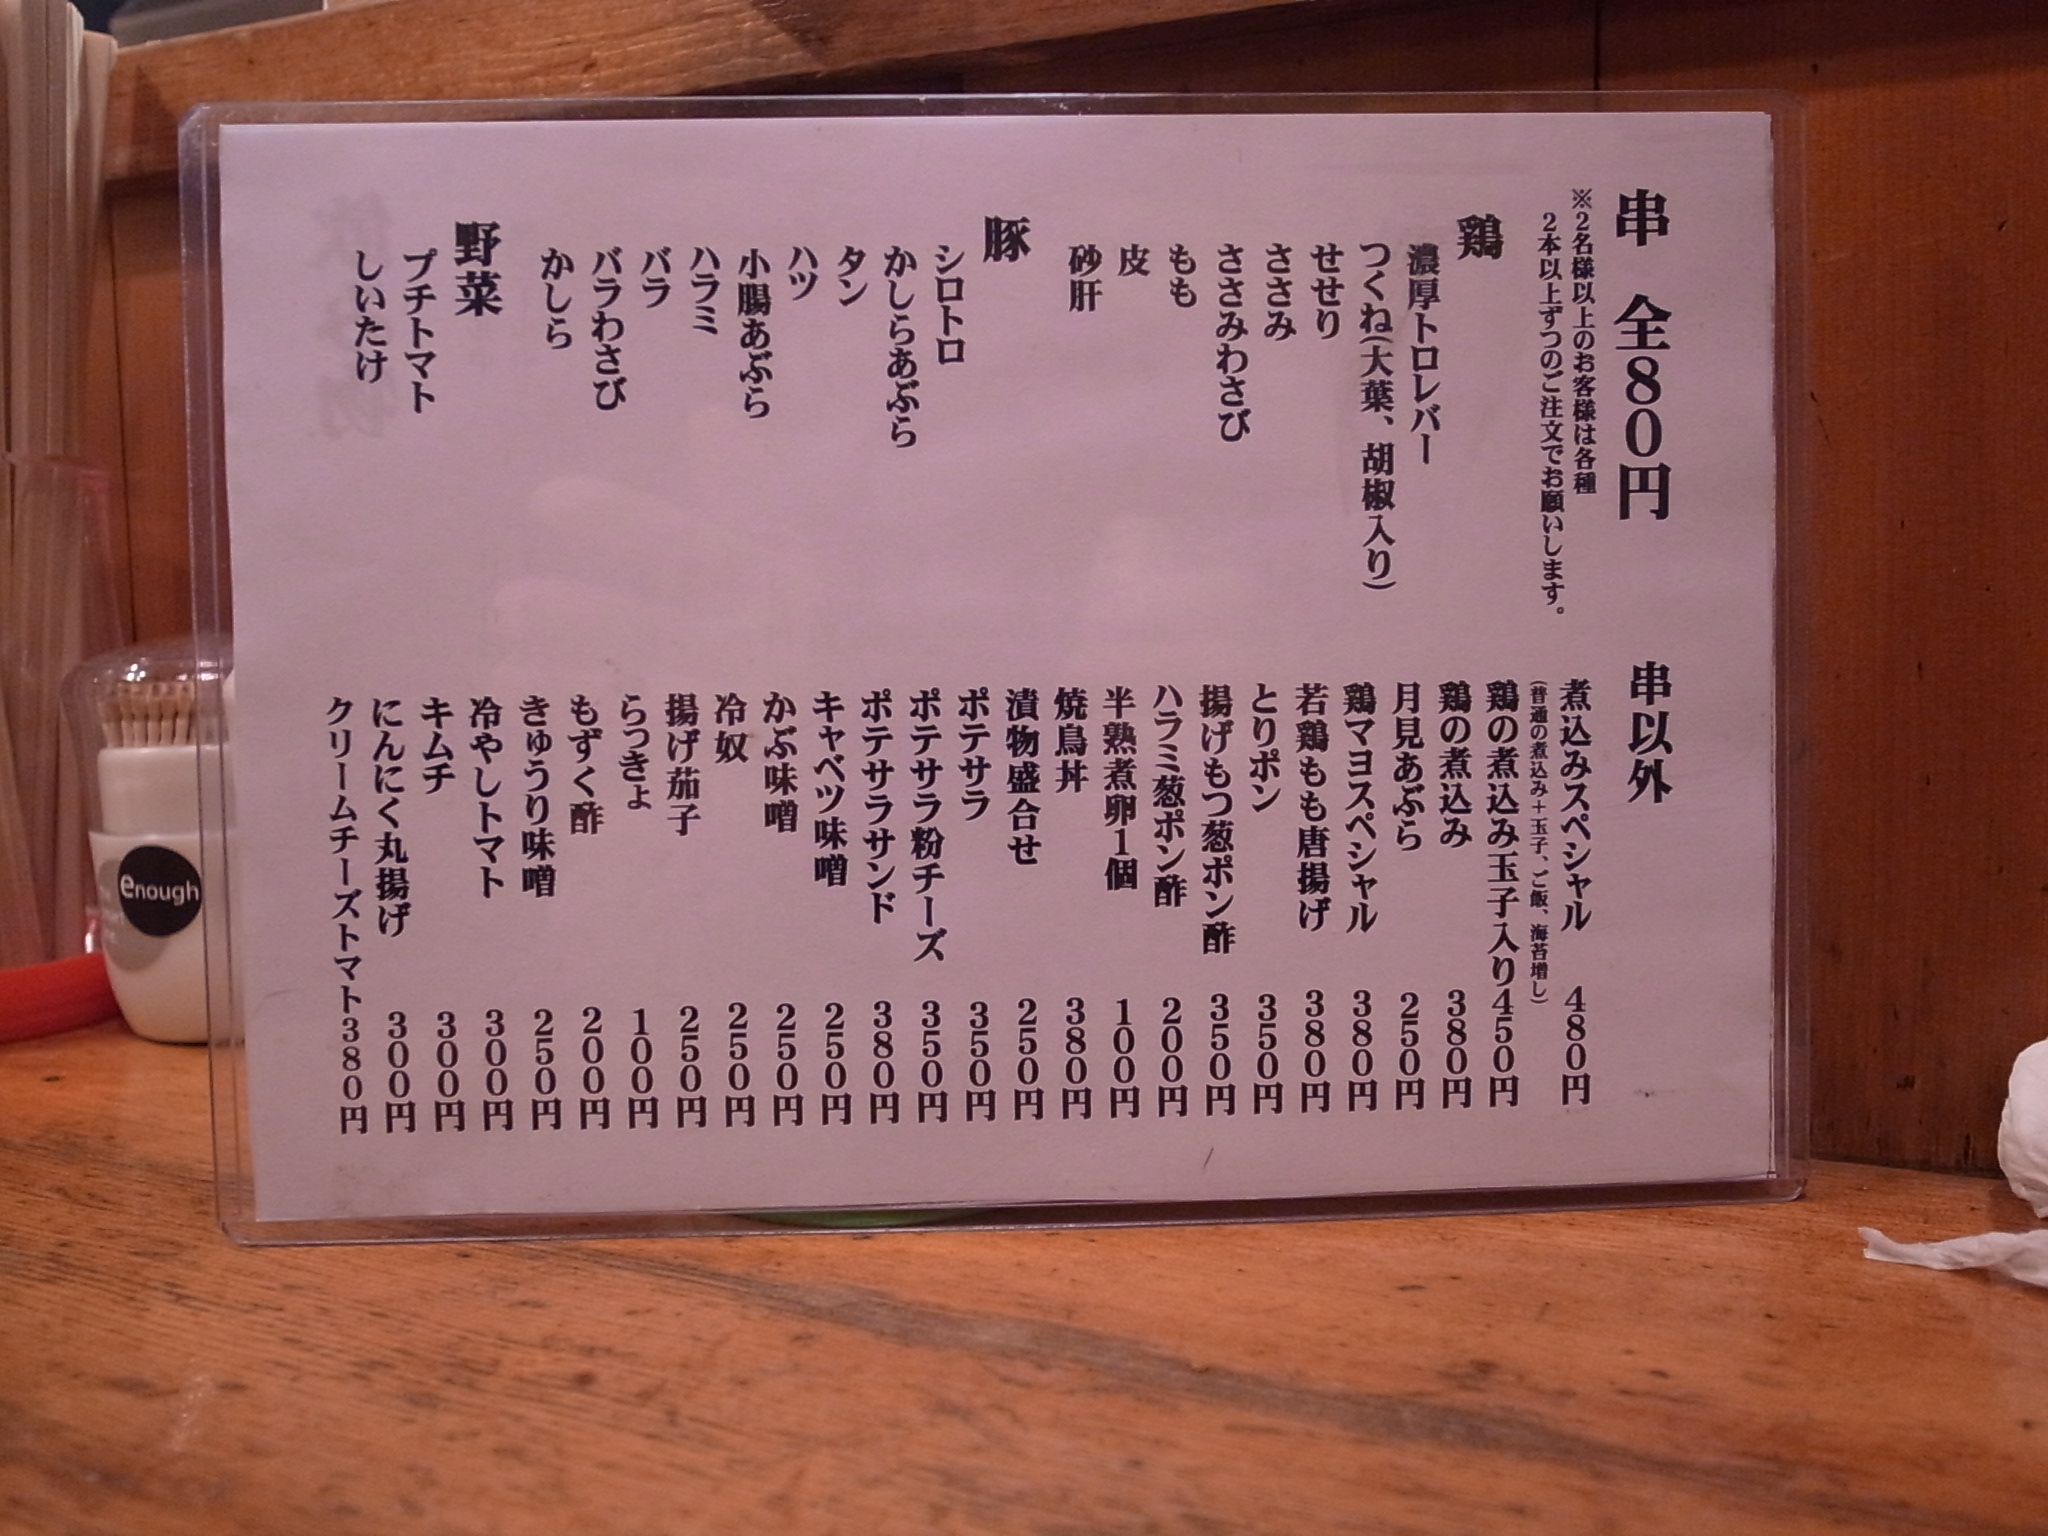 串 全80円
※2名様以上のお客様は各種
2本以上ずつのご注文でお願いします。
鶏
濃厚トロレバー
つくね(大葉、胡椒入り)
せせり
ささみ
ささみわさび
もも
皮
砂肝
豚
シロトロ
かしらあぶら
タン
ハツ
小腸あぶら
ハラミ
バラ
バラわさび
かしら
野菜
プチトマト
しいたけ
串以外
煮込みスペシャル 480円
(普通の煮込み+玉子、ご飯、海苔増し)
鶏の煮込み玉子入り450円
鶏の煮込み 380円
月見あぶら 250円
鶏マヨスペシャル 380円
若鶏もも唐揚げ 380円
とりポン 350円
揚げもつ葱ポン酢 350円
ハラミ葱ポン酢 200円
半熟煮卵1個 100円
焼鳥丼 380円
漬物盛合せ 250円
ポテサラ 350円
ポテサラ粉チーズ 350円
ポテサラサンド 380円
キャベツ味噌 250円
かぶ味噌 250円
冷奴 250円
揚げ茄子 250円
らっきょ 100円
もずく酢 200円
きゅうり味噌 250円
冷やしトマト 300円
キムチ 300円
にんにく丸揚げ 300円
クリームチーズトマト380円
enough